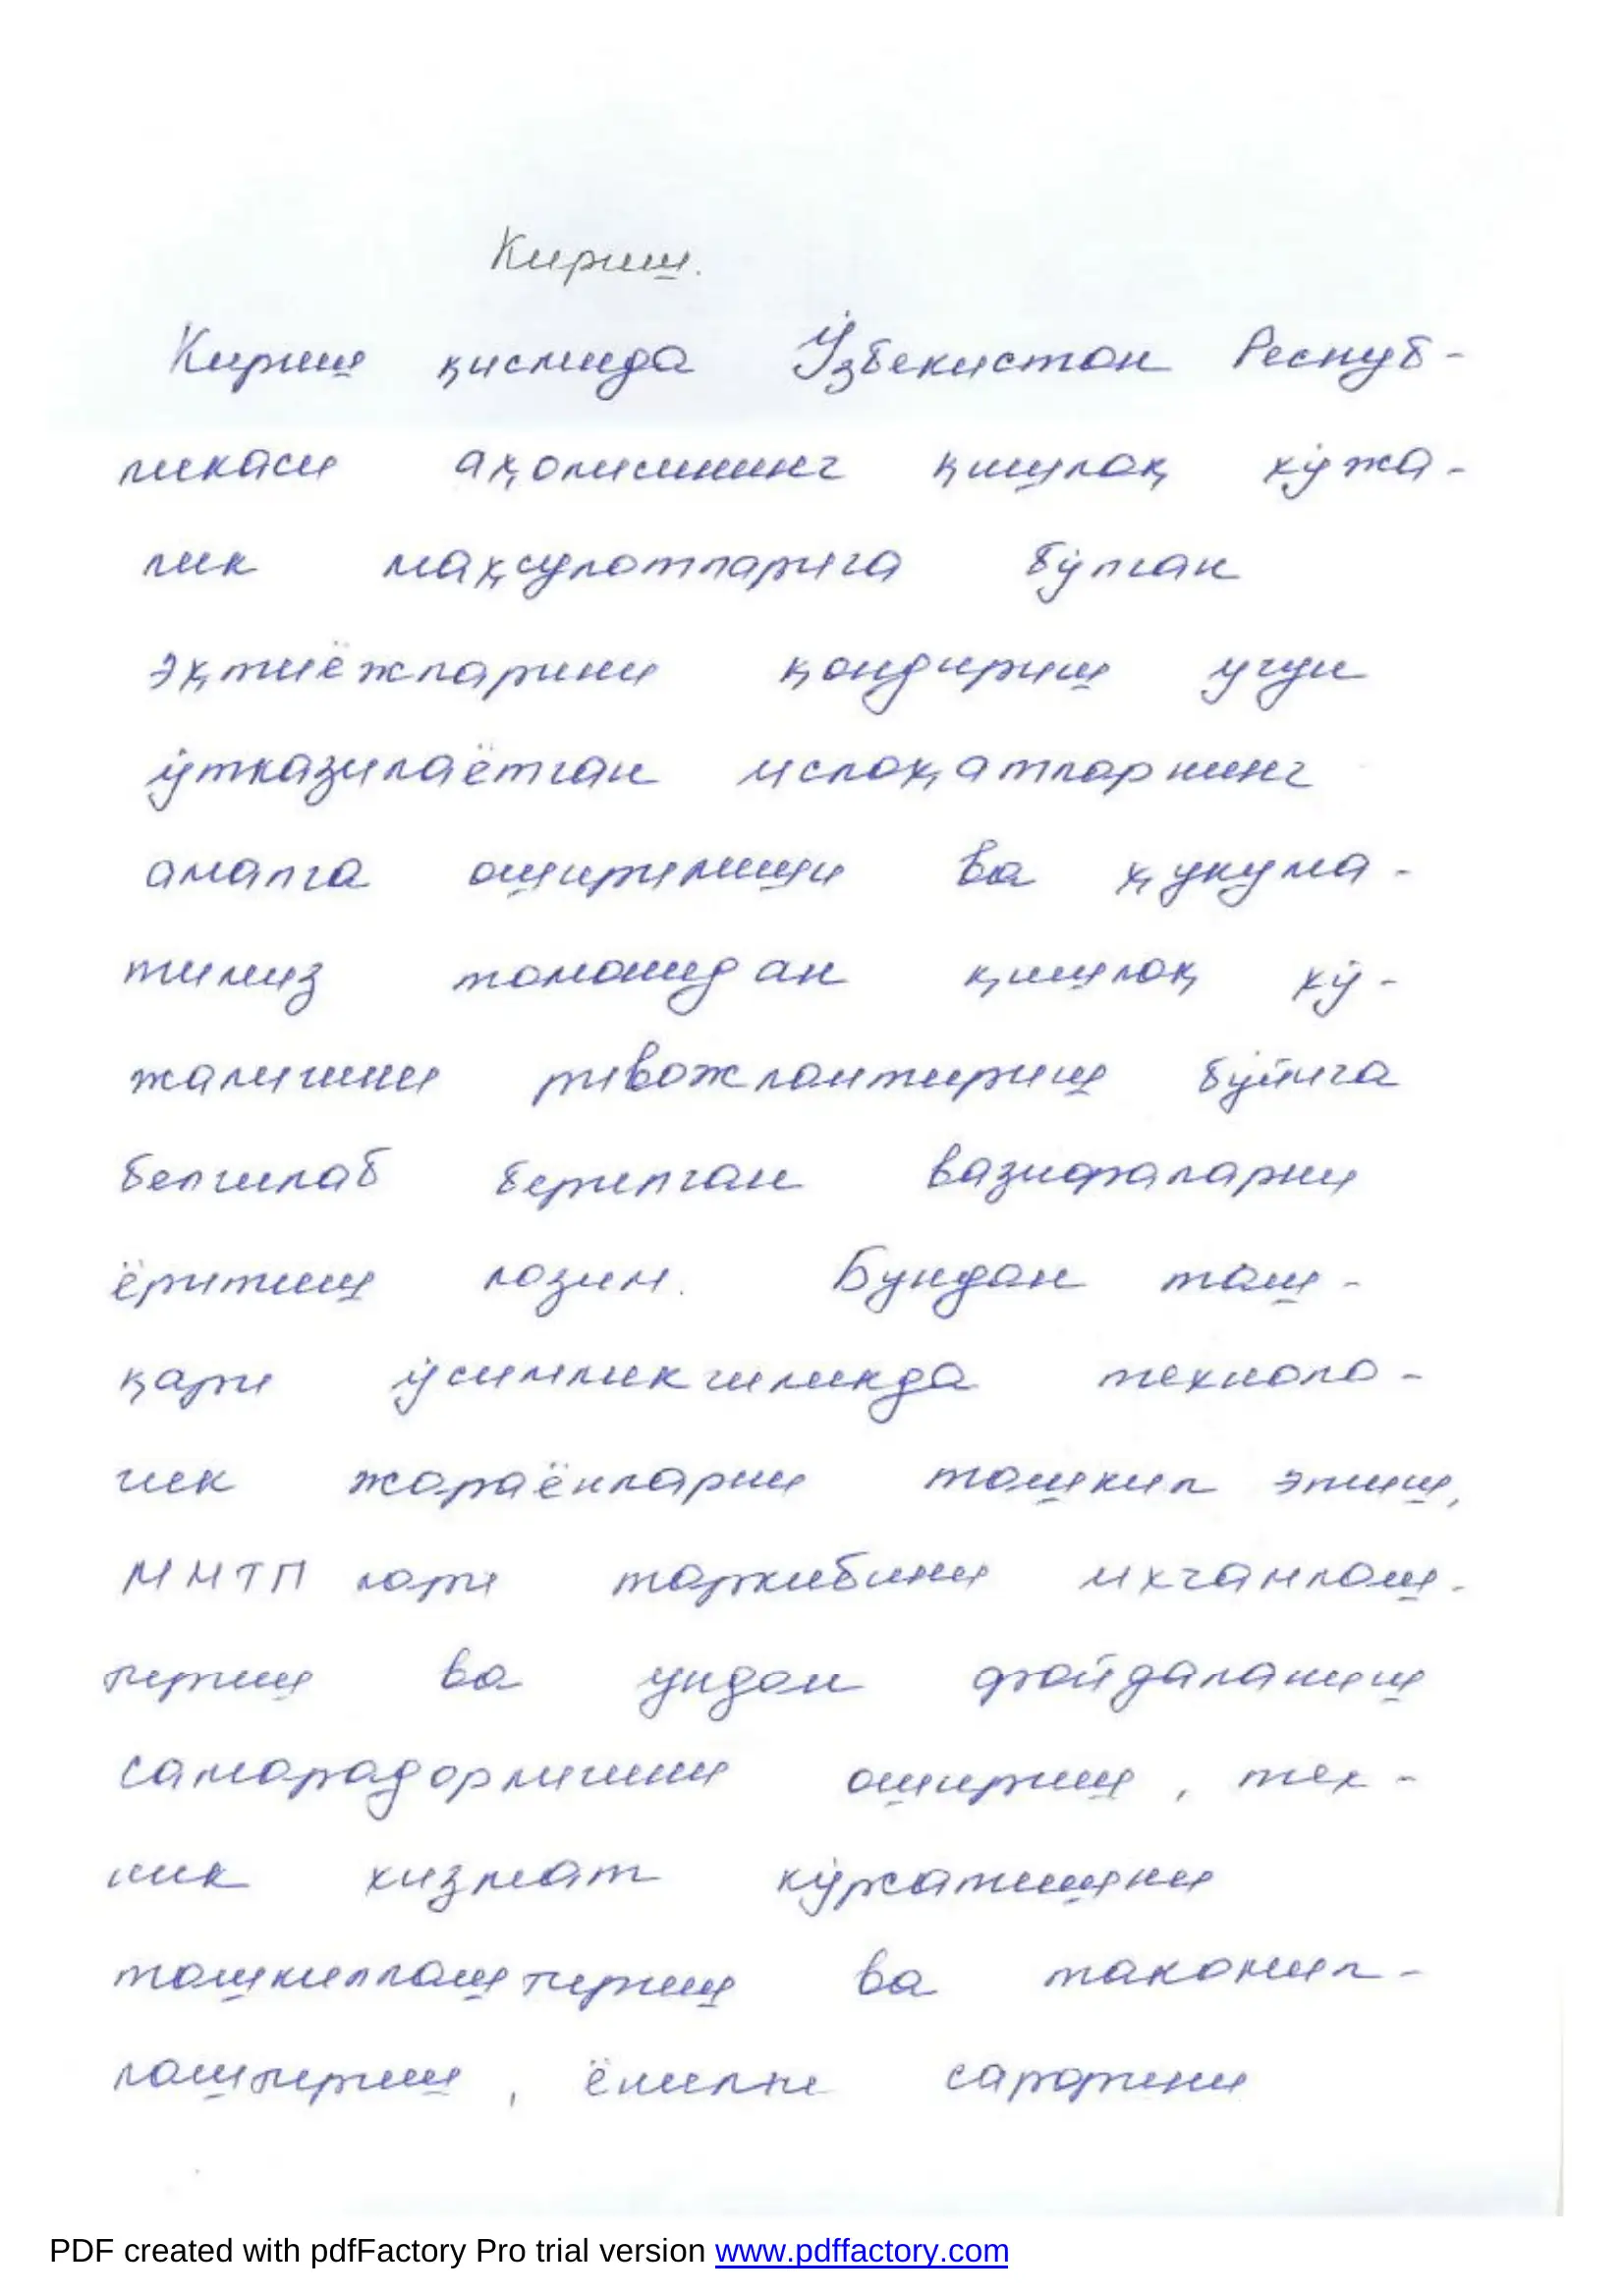 Кириш.
Кириш қисмида Ўзбекистон Респуб-
ликаси аҳолисининг қишлоқ хўжа-
лик маҳсулотларига бўлган
эҳтиёжларини қондириш учун
ўтказилаётган ислоҳатларнинг
амалга оширилиши ва ҳукума-
тимиз томонидан қишлоқ хў-
жалигини ривожлантириш бўйича
белгилаб берилган вазифаларни
ёритиш лозим. Бундан таш-
қари ўсимликчиликда техноло-
гик жараёнларни ташкил этиш,
ММТП лари таркибини ихчамлаш-
тириш ва ундан фойдаланиш
самарадорлигини ошириш, тех-
ник хизмат кўрсатишни
ташкиллаштириш ва такомил-
лаштириш, ёнилғи сарфини
PDF created with pdfFactory Pro trial version www.pdffactory.com